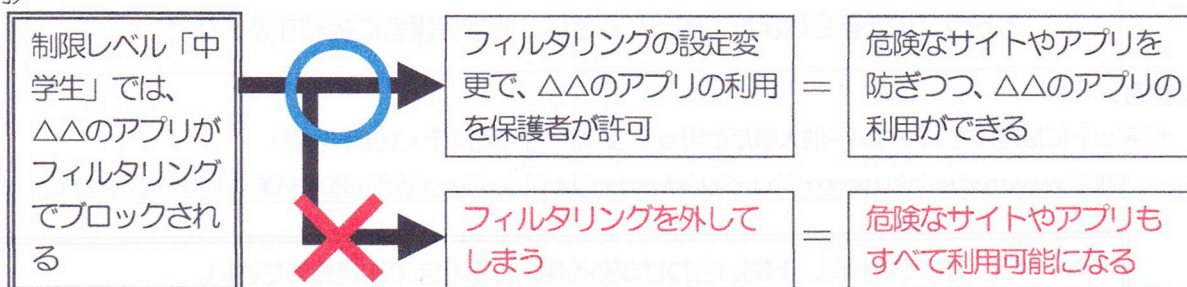 制限レベル「中
学生」では、
△△のアプリが
フィルタリング
でブロックされ
る
フィルタリングの設定変
更で、△△のアプリの利用
を保護者が許可
=
危険なサイトやアプリを
防ぎつつ、△△のアプリの
利用ができる
フィルタリングを外して
しまう
=
危険なサイトやアプリも
すべて利用可能になる